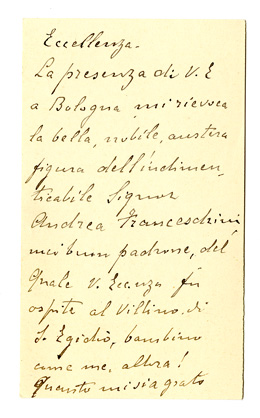 Eccellenza.
La presenza di V. E
a Bologna, mi rievoca
la bella, nobile, austera
figura dell'indimen
ticabile Signor
Andrea Franceschini
mio buon padrone, del
quale V. Eccenza fu
ospite al Villino di
S. Egidio, bambino
come me, allora!
Quanto mi sia grato